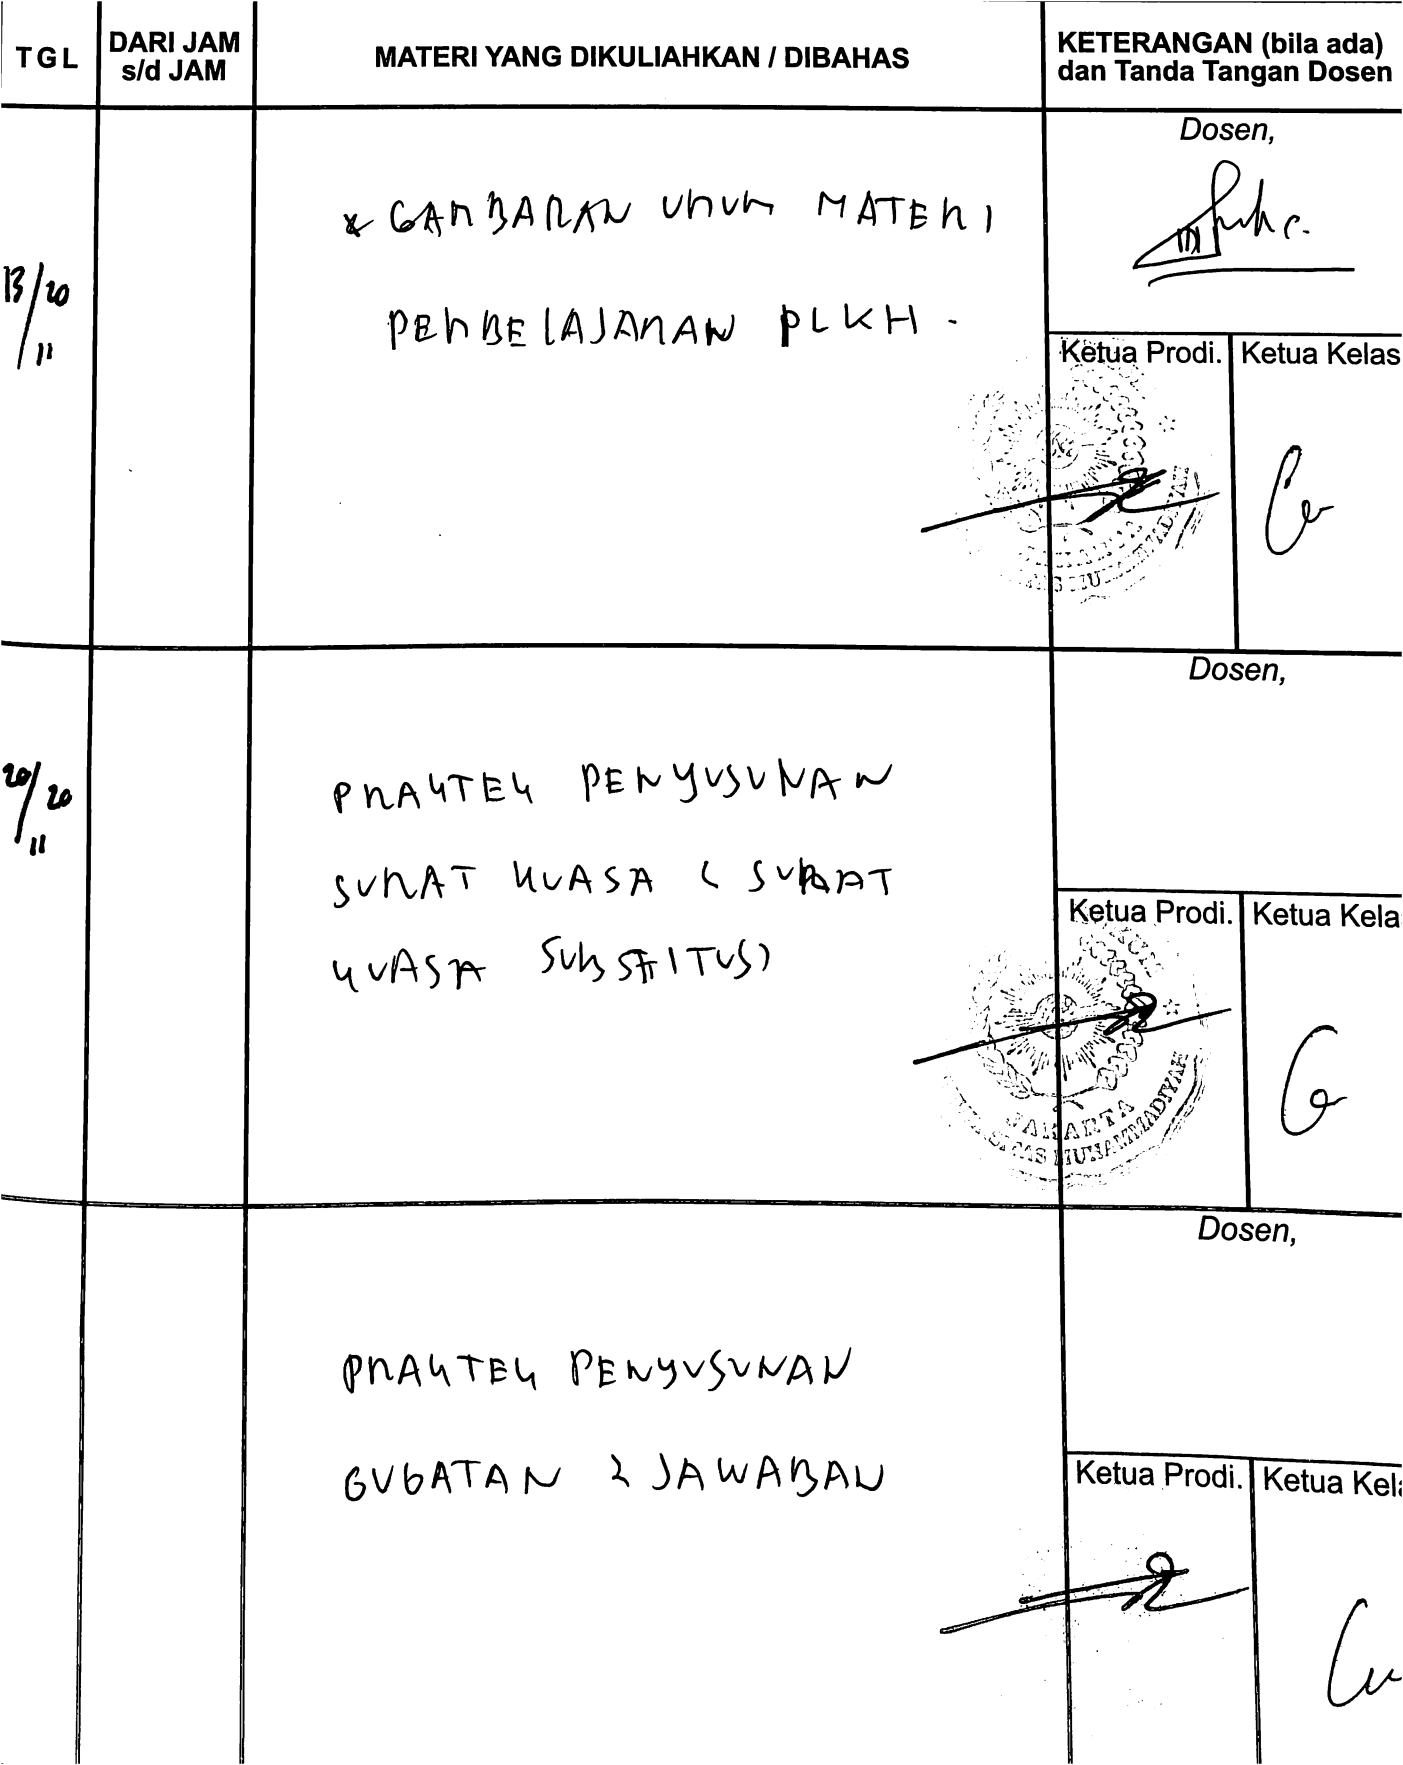 TGL
DARI JAM
s/d JAM
MATERI YANG DIKULIAHKAN / DIBAHAS
KETERANGAN (bila ada)
dan Tanda Tangan Dosen
13/20
11
* GAMBARAN UMUM MATERI
PEMBELAJARAN PLKH.
Dosen,
Ketua Prodi.
Ketua Kelas
20/20
11
PRAKTEK PENYUSUNAN
SURAT KUASA ( SURAT
KUASA SUBSTITUSI)
Dosen,
Ketua Prodi.
Ketua Kela
JAKARTA
MUHAMMADIYAH
PRAKTEK PENYUSUNAN
GUGATAN & JAWABAN
Dosen,
Ketua Prodi.
Ketua Kel